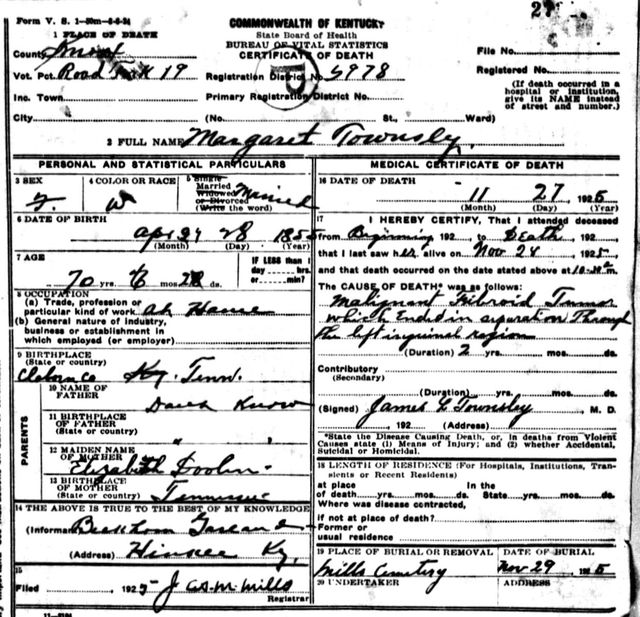 Form V. S. 1-50m-6-6-24
COMMONWEALTH OF KENTUCKY
State Board of Health
BUREAU OF VITAL STATISTICS
CERTIFICATE OF DEATH
1 PLACE OF DEATH
County Knox
Vot. Pct. Road Fork 19
Inc. Town
City
Registration District No. 6978
Primary Registration District No.
(No. St., Ward)
File No.
Registered No.
(If death occurred in a
hospital or institution,
give its NAME instead
of street and number.)
2 FULL NAME Margaret Townsly
PERSONAL AND STATISTICAL PARTICULARS
3 SEX
F.
4 COLOR OR RACE
W
5 Single
Married
Widowed
or Divorced
(Write the word)
Married
6 DATE OF BIRTH
28 1855
(Month) (Day) (Year)
7 AGE
70 yrs. 6 mos. ds.
IF LESS than 1
day hrs.
or min.?
8 OCCUPATION
(a) Trade, profession or
particular kind of work at House
(b) General nature of industry,
business or establishment in
which employed (or employer)
9 BIRTHPLACE
(State or country)
Claborn Co Ky. Tenn.
PARENTS
10 NAME OF
FATHER
Know
11 BIRTHPLACE
OF FATHER
(State or country)
" "
12 MAIDEN NAME
OF MOTHER
Elizabeth
13 BIRTHPLACE
OF MOTHER
(State or country)
Tennessee
14 THE ABOVE IS TRUE TO THE BEST OF MY KNOWLEDGE
(Informant)
(Address) Ky.
15
Filed , 1925 Mills
Registrar
MEDICAL CERTIFICATE OF DEATH
16 DATE OF DEATH
11 27, 1925
(Month) (Day) (Year)
17 I HEREBY CERTIFY, That I attended deceased
from Beginning, 192 to Death, 192
that I last saw her alive on Nov 24, 1925
and that death occurred on the date stated above at
The CAUSE OF DEATH* was as follows:
Malignant Fibroid Tumor
which Ended in separation Through
the left inguinal region
(Duration) 2 yrs. mos. ds.
Contributory
(Secondary)
(Duration) yrs. mos. ds.
(Signed) James L Townsly, M. D.
, 192 (Address)
*State the Disease Causing Death, or, in deaths from Violent
Causes state (1) Means of Injury; and (2) whether Accidental,
Suicidal or Homicidal.
18 LENGTH OF RESIDENCE (For Hospitals, Institutions, Transients or Recent Residents)
at place In the
of death yrs. mos. ds. State yrs. mos. ds.
Where was disease contracted,
if not at place of death?
Former or
usual residence
19 PLACE OF BURIAL OR REMOVAL
Mills Cemetery
DATE OF BURIAL
Nov 29 1925
20 UNDERTAKER
ADDRESS